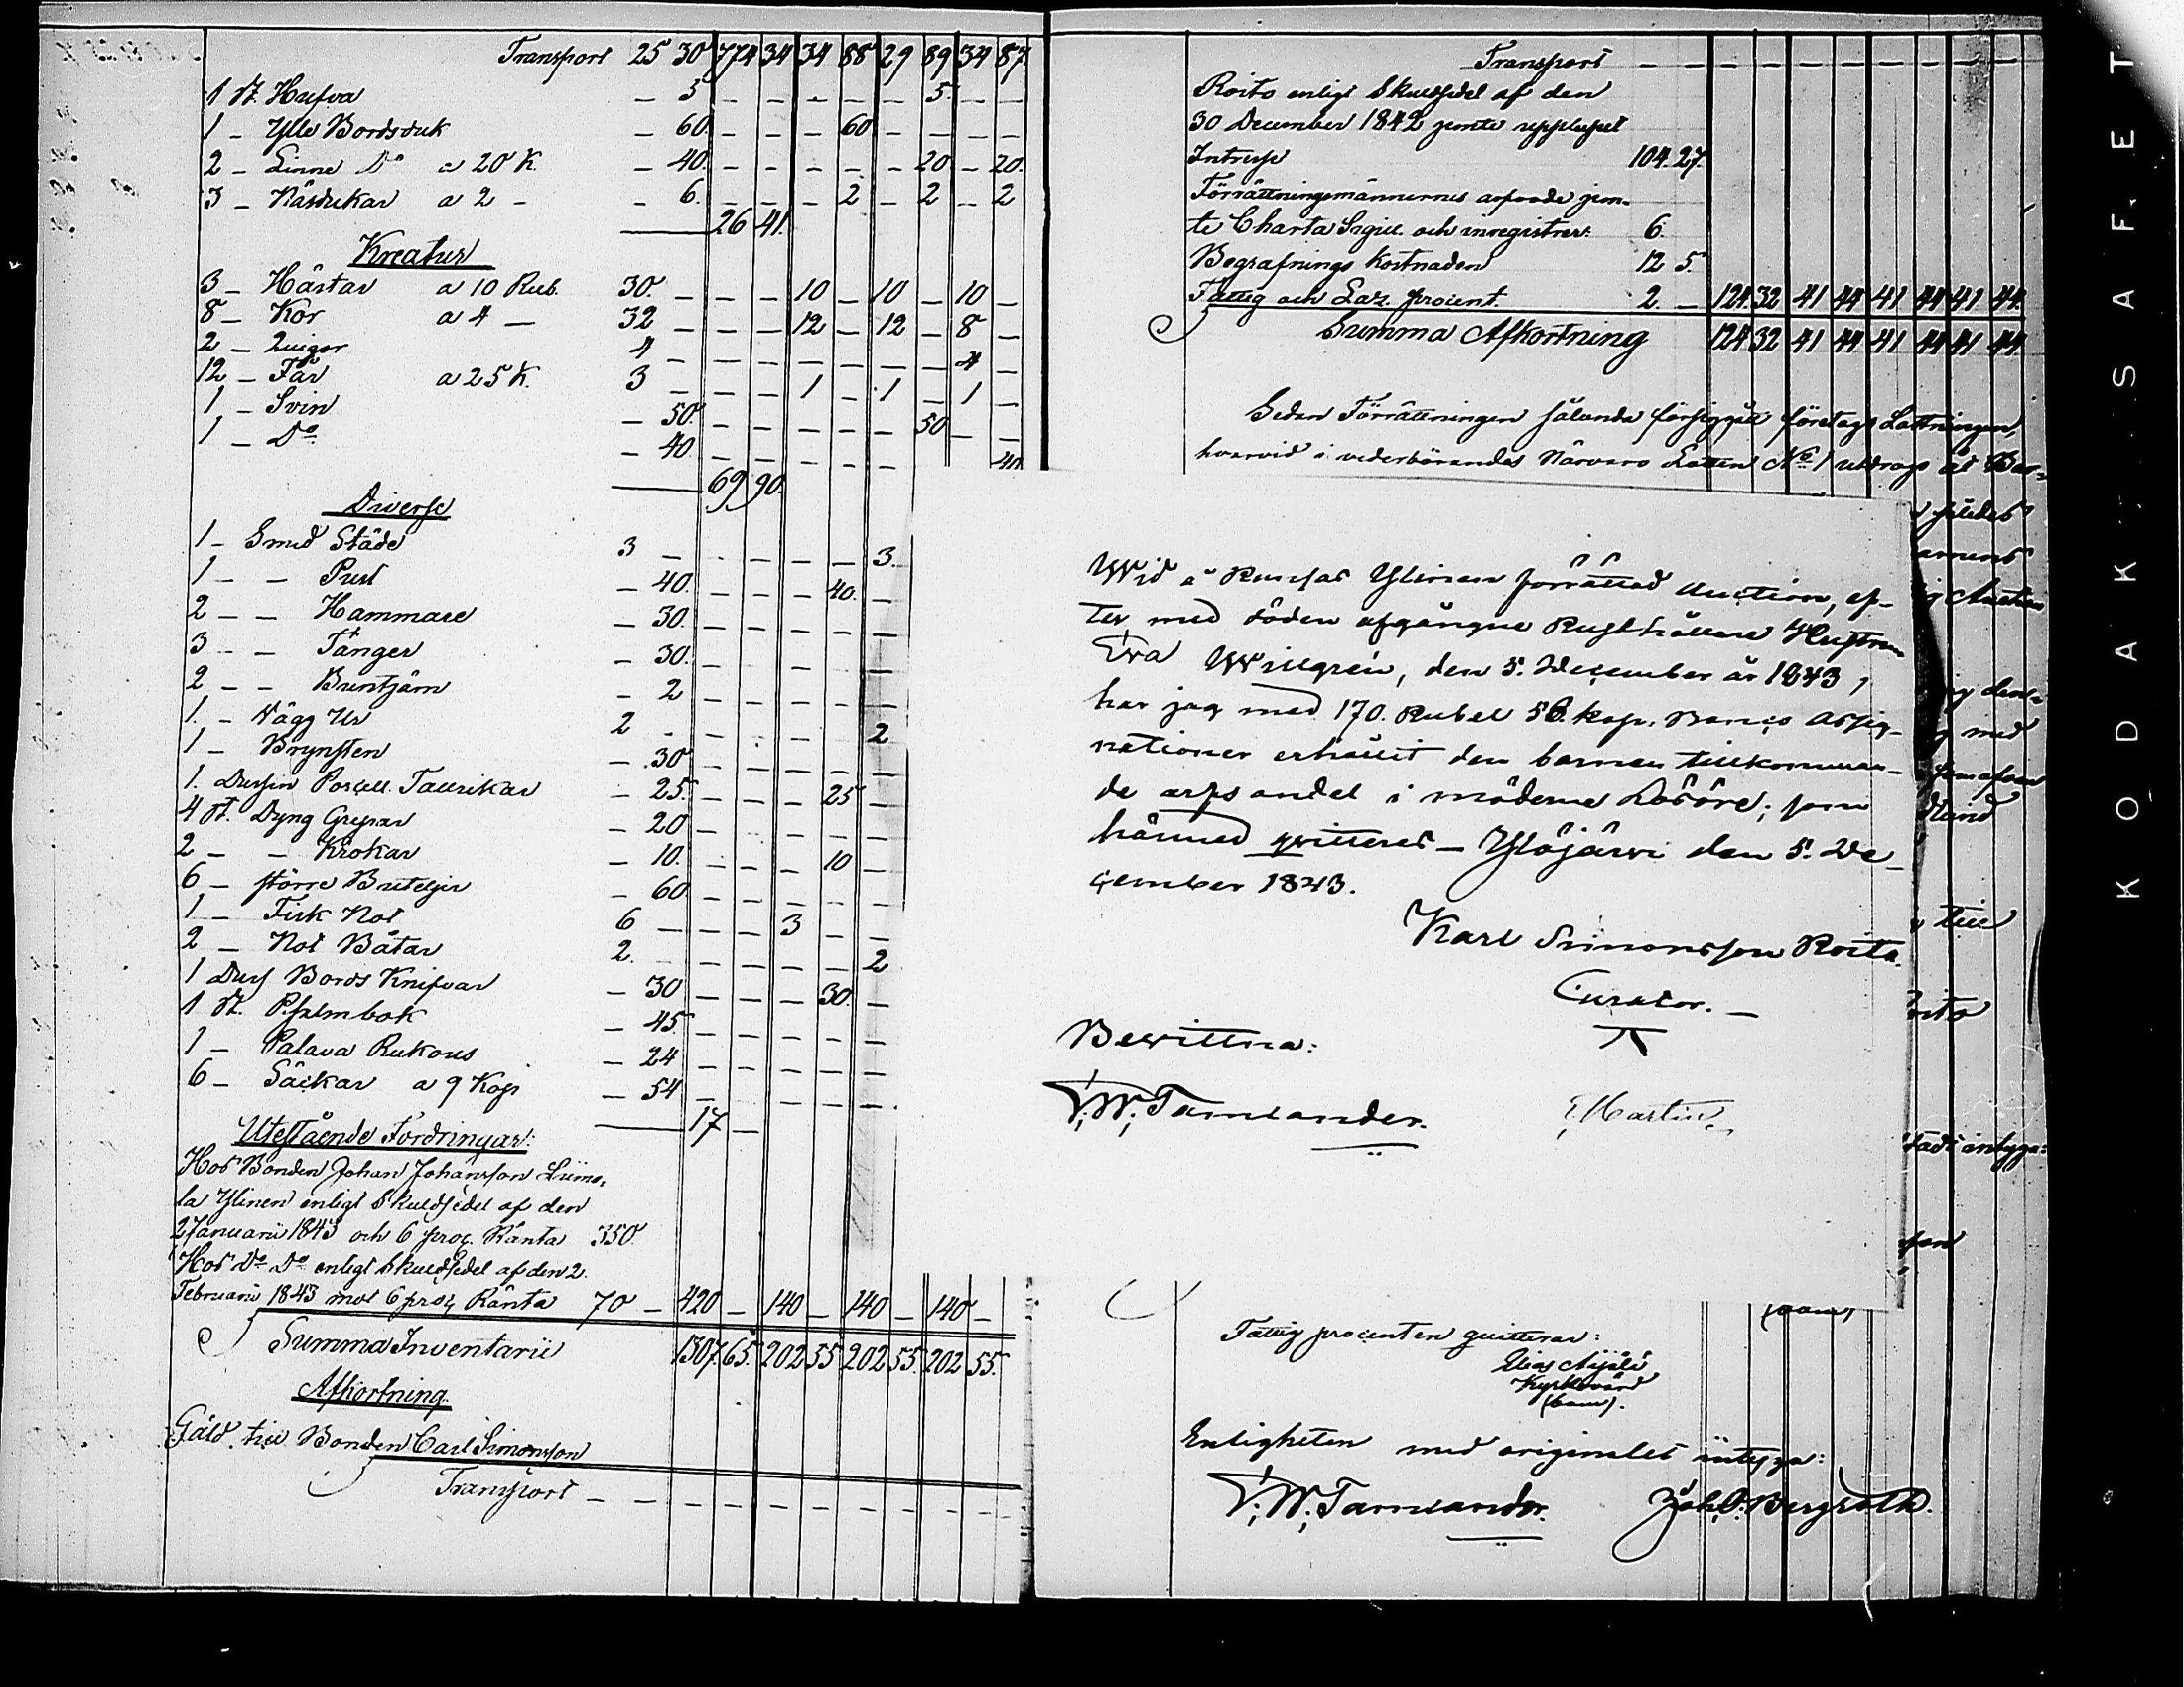 Transport 25 30 774 34 34 88 29 89 34 87
1 st. Hufva — 5 — — — — — 5. — —
1 — Ylle Bordsduk — 60. — — — 60 — — — —
2 — Linne Do a 20 K. — 40. — — — — — 20 — 20.
3 — Näsdukar a 2 — — 6. — — — 2 — 2 — 2
26 41.
Kreatur
3 — Hästar a 10 Rub. 30. — — — 10 — 10 — 10 —
8 — Kor a 4 — 32 — — — 12 — 12 — 8 —
2 — Quigor 4 — — — — — — — 4 —
12 — Får a 25 K. 3 — — — 1 — 1 — 1 —
1 — Svin — 50. — — — — — 50 — —
1 — Do — 40 — — — — — — — 40
69 90.
Diverse
1 — Smed Städe 3 — — — — — 3.
1 — — Pust — 40. — — — 40. —
2 — — Hammare — 30. — — — — —
3 — — Tänger — 30. — — — —
2 — — — 2 — — — — —
1. — Vägg Ur 2 — — — — 2
1 — Brynsten — 30 — — — — —
1. Dussin Porcell. Tallrikar — 25. — — — 25 —
4 st. Dyng Grepar — 20 — — — — —
2 — — Krokar — 10. — — — 10 —
6 — större Buteljer — 60 — — — — —
1 — Fisk Not 6 — — — 3 — —
2 — Not Båtar 2. — — — — — 2
1 Duss Bords Knifvar — 30 — — — 30. —
1 st. Psalmbok — 45 — — — — —
1 — Palava Rukous — 24 — — — — —
6 — Säckar a 9 Kop — 54 — — — — —
17 —
Utestående Fordringar:
Hos Bonden Johan Johansson Liimo-
la Ylinen enligt Skuldsedel af den
2 Januarii 1843 och 6 proc. Ränta 350.
Hos Do Do enligt Skuldsedel af den 2.
Februarii 1843 mot 6 proc. Ränta 70 — 420 — 140 — 140 — 140 —
Summa Inventarii 1307 65. 202 55 202 55. 202 55.
Afkortning.
Gäld till Bonden Carl Simonsson
Transport — — — — — — — — —
Transport — — — — — — — — —
Roito enligt Skuldsedel af den
30 December 1842 jemte upplupet
Intresse 104. 27.
Förrättningsmännernes arfvode jem-
te Charta Sigill. och inregistrer. 6.
Begrafnings kostnaden 12 5.
Fattig och Laz. procent. 2. — 124 32 41 44 41 44 41 44
Summa Afkortning 124 32 41 44 41 44 41 44
Sedan Förrättningen sålunda försiggått företogs Lottningen,
hvarvid i vederbörandes Närvaro Lotten No 1 utdrogs åt
Wid å Ylinen förrättad Auction, ef-
ter med döden afgångne Rusthållare Hustrun
Eva Willgrén, den 5. December år 1843,
har jag med 170. Rubel 56. kop. Banco Assig-
nationer erhållit den barnen tillkomman-
de arfs andel i möderne Lösöre; som
härmed qvitteras — Ylöjärvi den 5. De-
cember 1843.
Karl Simonsson Roito.
Curator. —
Bevittna:
F. W. Tamlander.
Martin
till
intyga:
Fattig procenten quitterar:
Elias Äijälä
Kyrkovärd
Enligheten med originalet intyga:
F. W. Tamlander. Joh. O. Bergroth.
KODAK SAFET